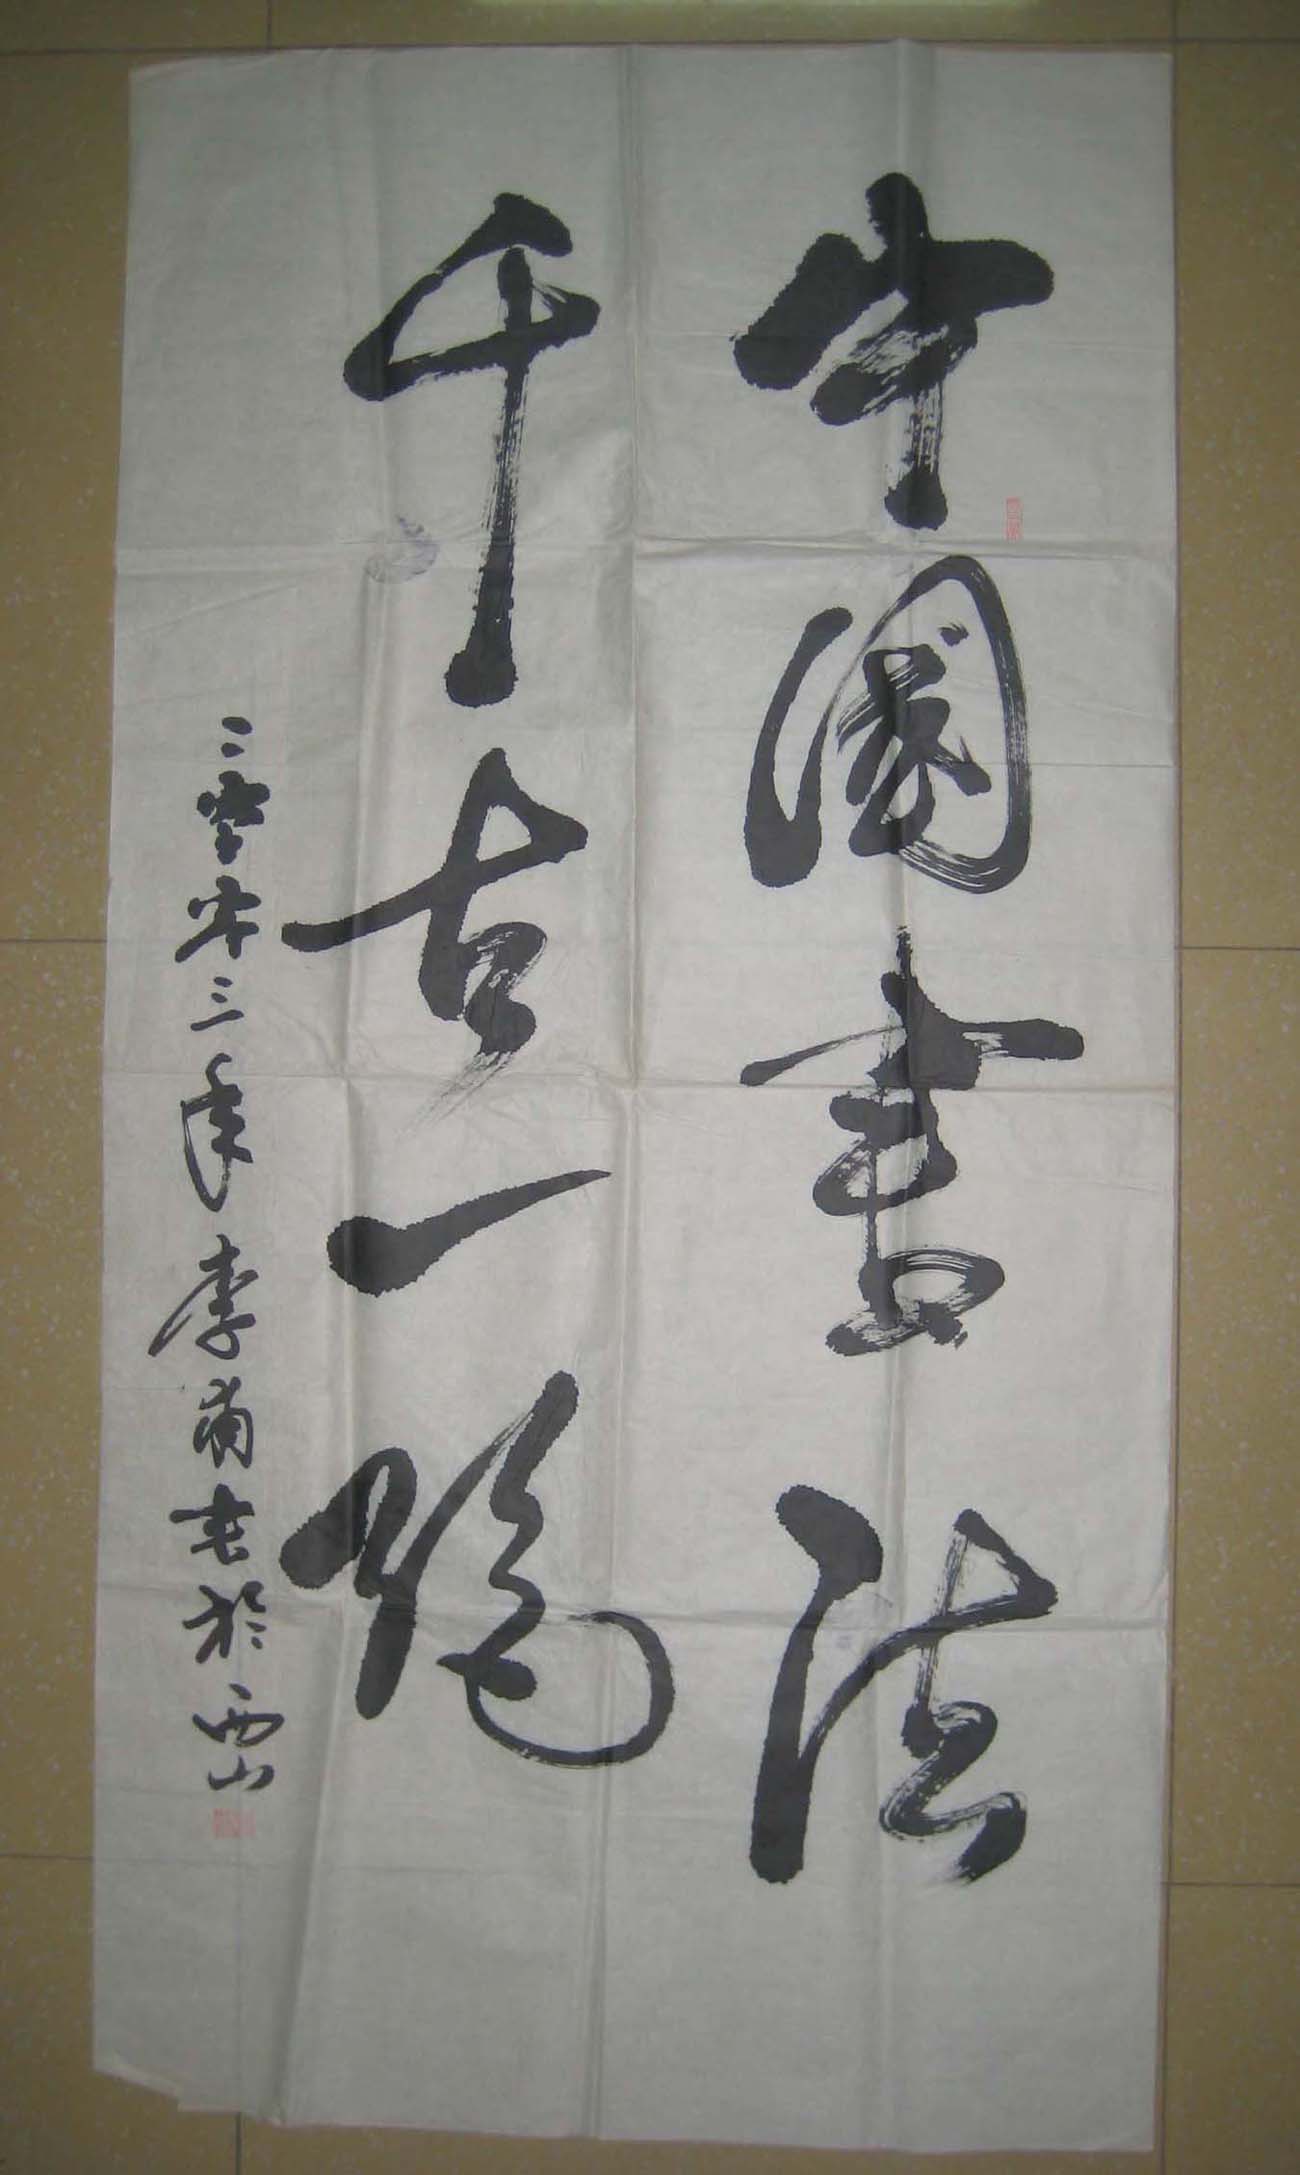 中國書法
千古一陽
二零零三年李甫書於西山